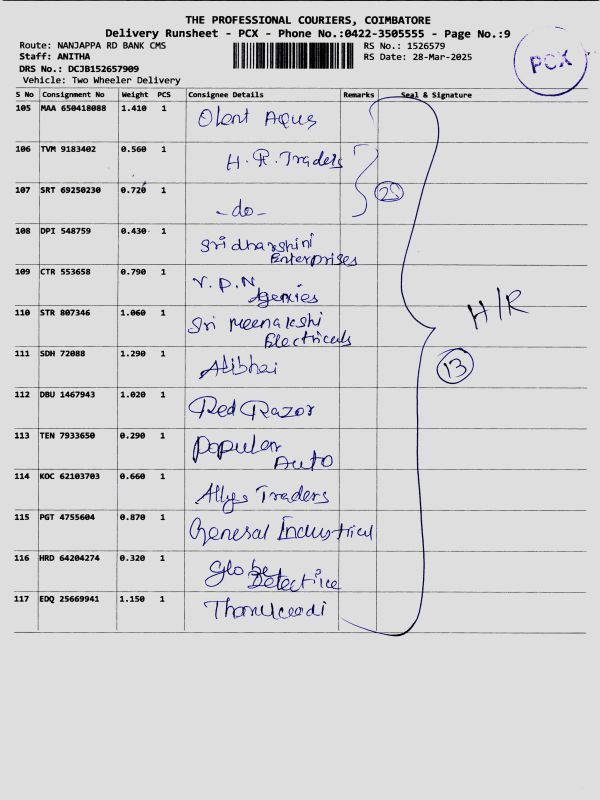 THE PROFESSIONAL COURIERS, COIMBATORE
Delivery Runsheet - PCX - Phone No.:0422-3505555 - Page No.:9
Route: NANJAPPA RD BANK CMS RS No.: 1526579
Staff: ANITHA RS Date: 28-Mar-2025
DRS No.: DCJB152657909
Vehicle: Two Wheeler Delivery
PCX
S No Consignment No Weight PCS Consignee Details Remarks Seal & Signature
105 MAA 650418088 1.410 1 Olent Aqus
106 TVM 9183402 0.560 1 H.R.Traders
107 SRT 69250230 0.720 1 -do-
2
108 DPI 548759 0.430 1 Sridharshini
Enterprises
109 CTR 553658 0.790 1 V.P.N
Agenxies
110 STR 807346 1.060 1 Sri meenakshi
Electricals
H/R
111 SDH 72088 1.290 1 Alibhai
13
112 DBU 1467943 1.020 1 Red Razor
113 TEN 7933650 0.290 1 Popular
Auto
114 KOC 62103703 0.660 1 Allys Traders
115 PGT 4755604 0.870 1 General Industrial
116 HRD 64204274 0.320 1 Globe
Detective
117 EDQ 25669941 1.150 1